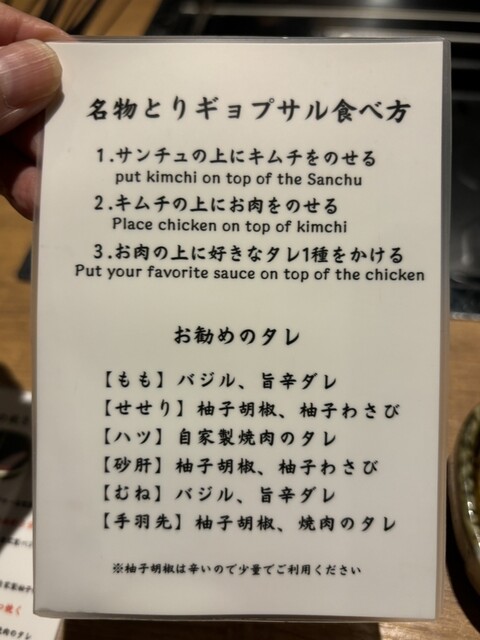 名物とりギョプサル食べ方
1.サンチュの上にキムチをのせる
put kimchi on top of the Sanchu
2.キムチの上にお肉をのせる
Place chicken on top of kimchi
3.お肉の上に好きなタレ1種をかける
Put your favorite sauce on top of the chicken
お勧めのタレ
【もも】バジル、旨辛ダレ
【せせり】柚子胡椒、柚子わさび
【ハツ】自家製焼肉のタレ
【砂肝】柚子胡椒、柚子わさび
【むね】バジル、旨辛ダレ
【手羽先】柚子胡椒、焼肉のタレ
※柚子胡椒は辛いので少量でご利用ください